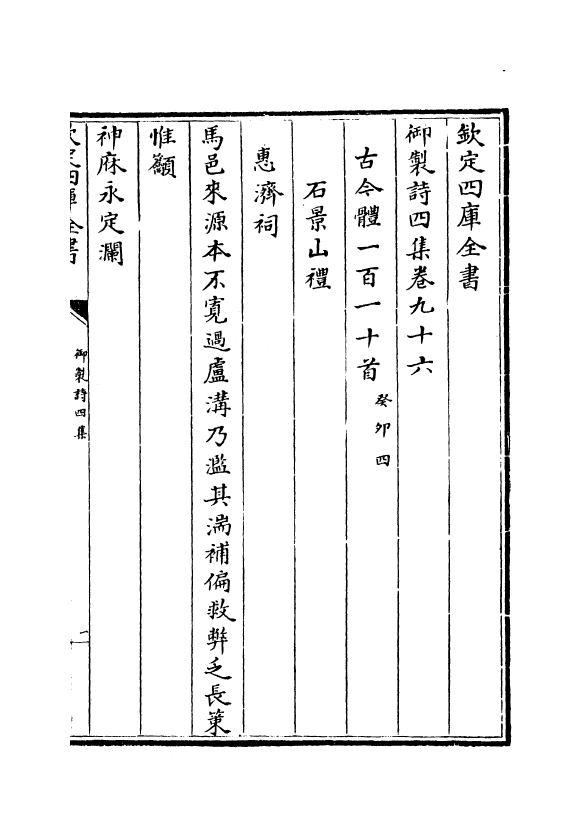 欽定四庫全書
御製詩四集卷九十六
古今體一百一十首癸卯四
石景山禮
惠濟祠
馬邑來源本不寛過盧溝乃濫其湍補偏救弊乏長策
惟籲
神庥永定瀾
欽定四庫全書
御製詩四集
一